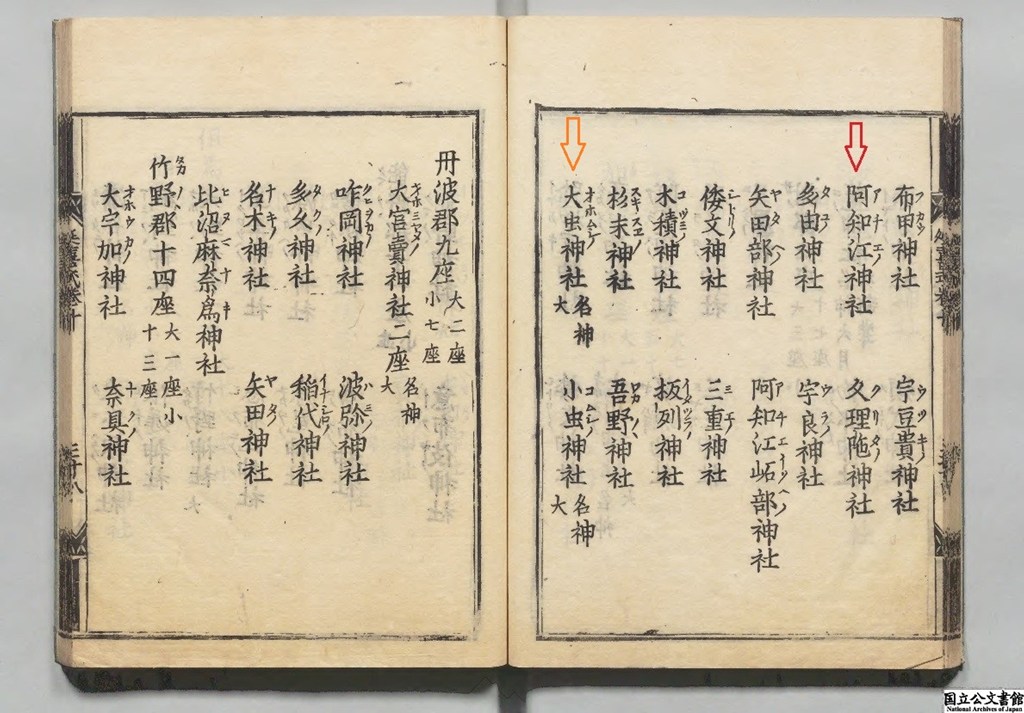 布甲神社 宇豆貴神社
阿知江神社 久理陁神社
多由神社 宇良神社
矢田部神社 阿知江峅部神社
倭文神社 三重神社
木積神社 板列神社
杉末神社 吾野神社
大虫神社 名神大 小虫神社 名神大
丹波郡九座 大二座 小七座
大宮賣神社二座 名神大
咋岡神社 波弥神社
多久神社 稲代神社
名木神社 矢田神社
比沼麻奈爲神社
竹野郡十四座 大一座 小十三座
大宇加神社 奈具神社
国立公文書館
National Archives of Japan